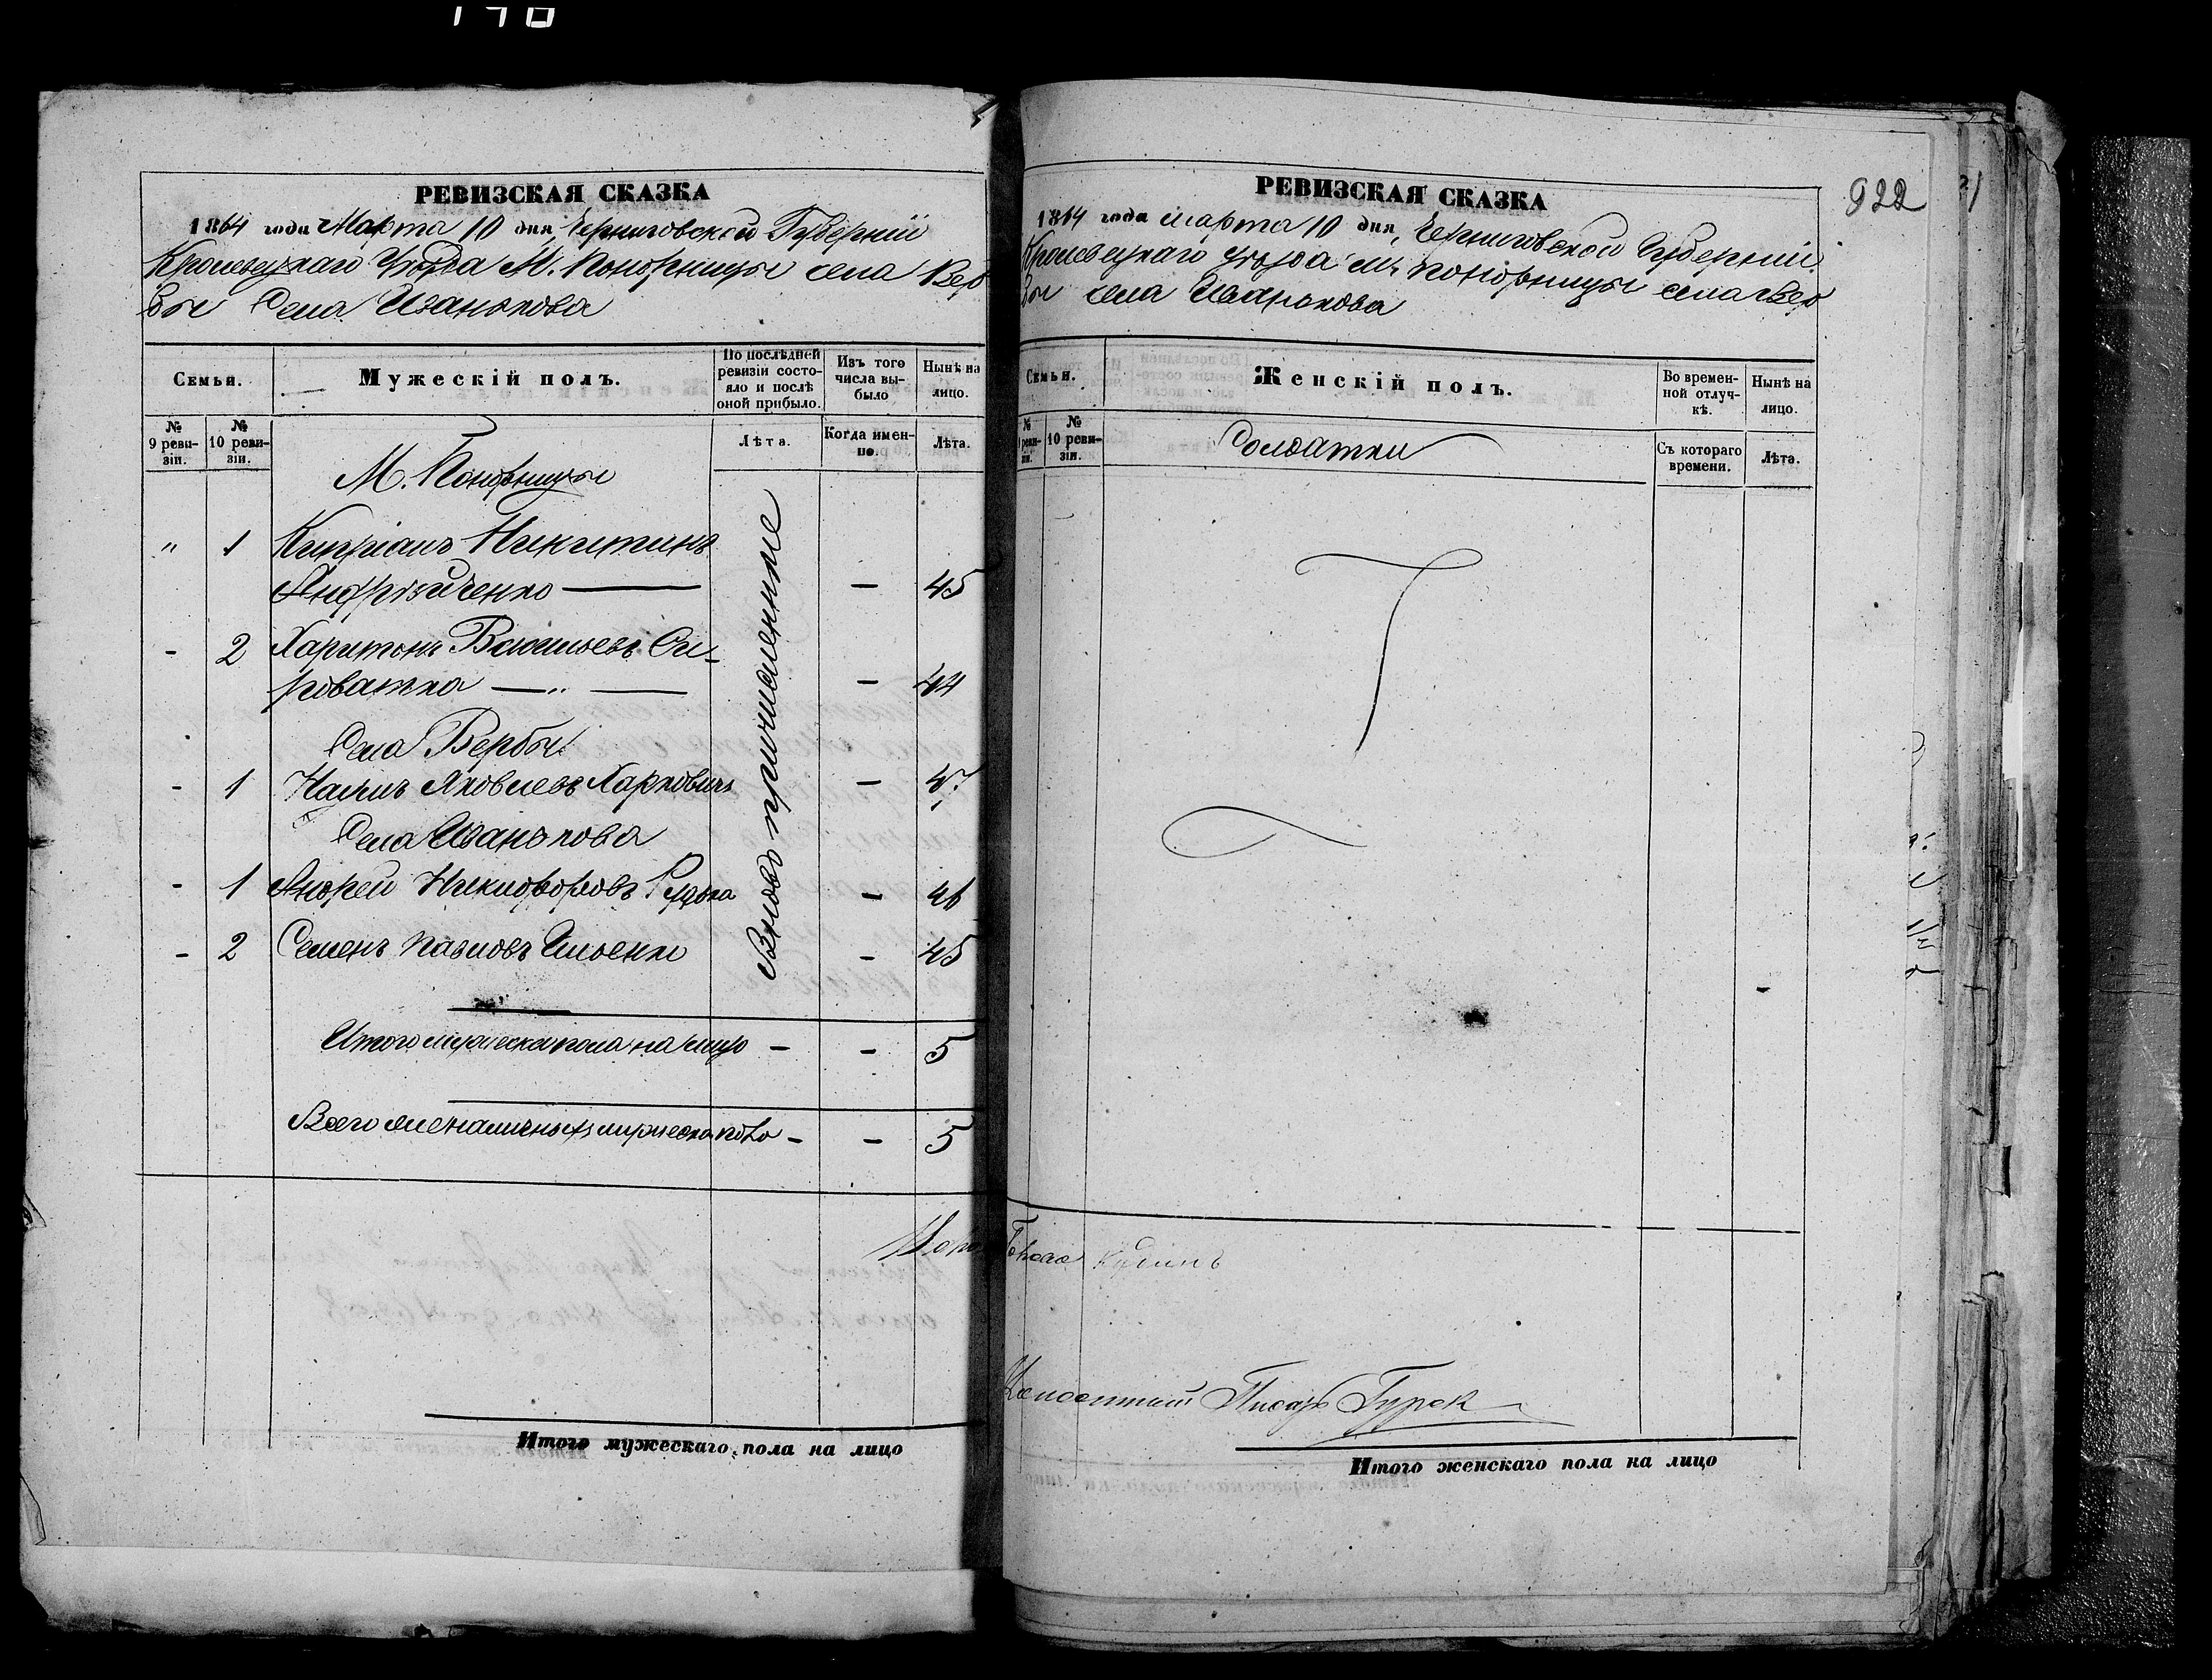 РЕВИЗСКАЯ СКАЗКА
1864 года Марта 10 дня, Черниговской Губерніи
Кролевецкаго Уѣзда М. Понорницы села Вер
бы Села Иванькова
Семьи.
Мужескій полъ.
По послѣдней ревизіи состояло и послѣ оной прибыло.
Изъ того числа выбыло
Нынѣ на лицо.
№ 9 ревизіи.
№ 10 ревизіи.
Лѣта.
Когда именно.
Лѣта.
М. Понорницы
" 1 Кипріанъ Никитинъ
— 45
- 2 Харитонъ Васильевъ Си-
роватка — " — — 44
Села Вербы
- 1 Наумъ Яковлевъ Харковичъ — 47
Села Иванькова
- 1 Андрей Никифоровъ Рудька — 46
- 2 Семенъ Павловъ Ильенко - 45
Вновь причисленные
Итого мужеска пола на лицо - - 5
Всего мужеска пола - - 5
Итого мужескаго пола на лицо
922
РЕВИЗСКАЯ СКАЗКА
1864 года марта 10 дня, Черниговской Губерніи
Кролевецкаго уѣзда м. Понорницы села Вер
бы села Иванькова
Семьи.
Женскій полъ.
Во временной отлучкѣ.
Нынѣ на лицо.
№ 9 ревизіи.
№ 10 ревизіи.
Съ котораго времени.
Лѣта.
Солдатки
Писарь
Итого женскаго пола на лицо